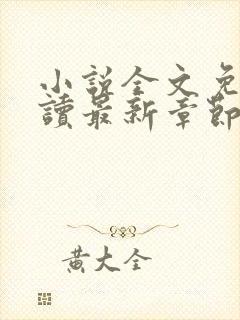 小說全文免
讀最新章節
黃大全